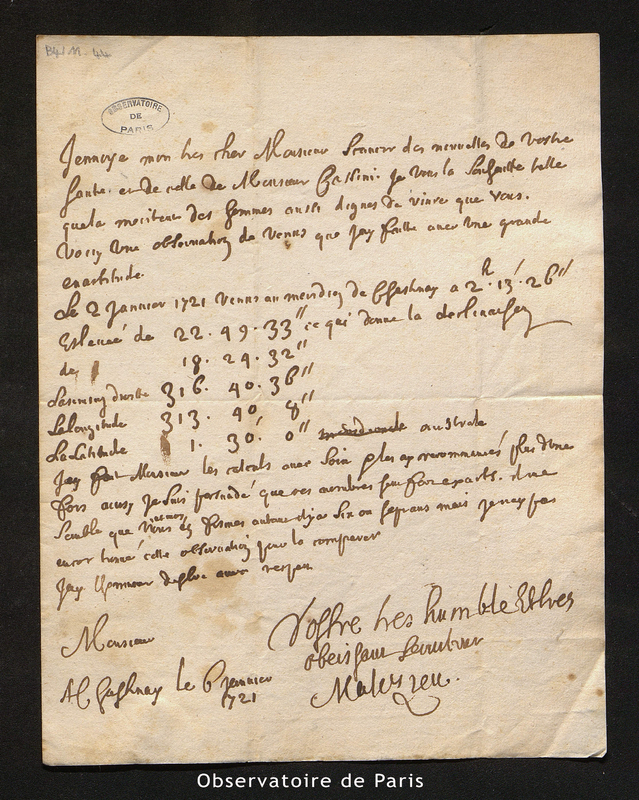 B4/12. 44
OBSERVATOIRE
DE
PARIS
Jenvoye mon tres cher Monsieur scavoir des nouvelles de vostre
sante. et de celle de Monsieur Cassini. Je vous la souhaitte telle
que la meritent des hommes aussi dignes de vivre que vous.
Voicy une observation de venus que jay faitte avec une grande
exactitude.
Le 2 Janvier 1721 venus au meridien de Chastnay a 2h. 13'. 26''
Eslevée de 22. 49. 33'' ce qui donne la declinaison
de 18. 24. 32''
Lascension droitte 316. 40. 36''
La longitude 313. 40 8''
La Latitude 1. 30' 0'' australe
Jay fait Monsieur les calculs avec soin et les ay recommancés plus dune
fois aussy je suis persuadé que ces nombres sont fort exacts. il me
semble que nous en fismes autant il y a six ou sept ans mais je nay pas
encor trouvé cette observation pour la comparer
Jay lhonneur destre avec respect
Monsieur
Vostre tres humble et tres
obeissant serviteur
Malezieu.
A Chastnay le 6 janvier
1721
Observatoire de Paris